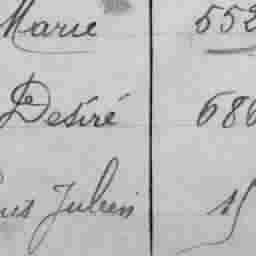 Marie 552
Désiré 686
Julien 15